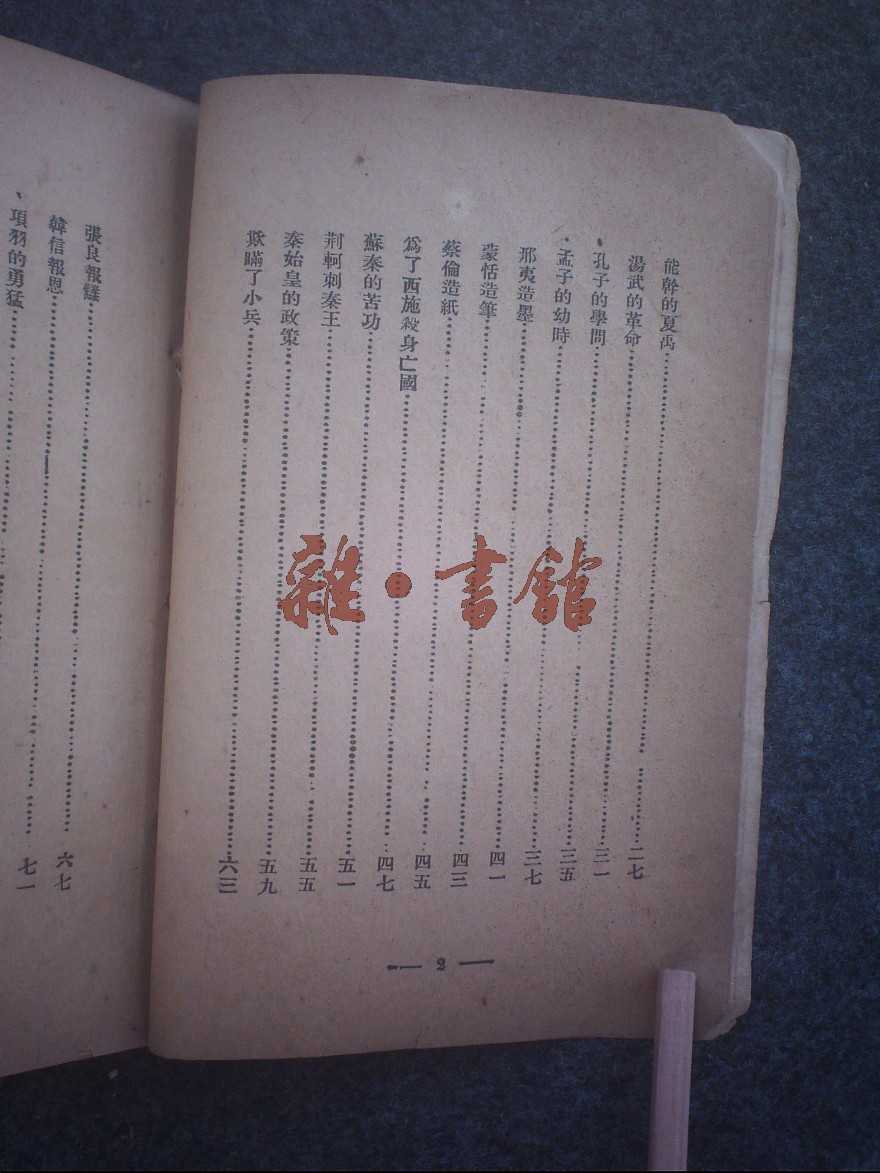 能幹的夏禹……二七
湯武的革命……三一
孔子的學問……三五
孟子的幼時……三七
邢夷造墨……四一
蒙恬造筆……四三
蔡倫造紙……四五
爲了西施殺身亡國……四七
蘇秦的苦功……五一
荆軻刺秦王……五五
秦始皇的政策……五九
欺瞞了小兵……六三
— 2 —
張良報讎……六七
韓信報恩……七一
項羽的勇猛……
雜·書館